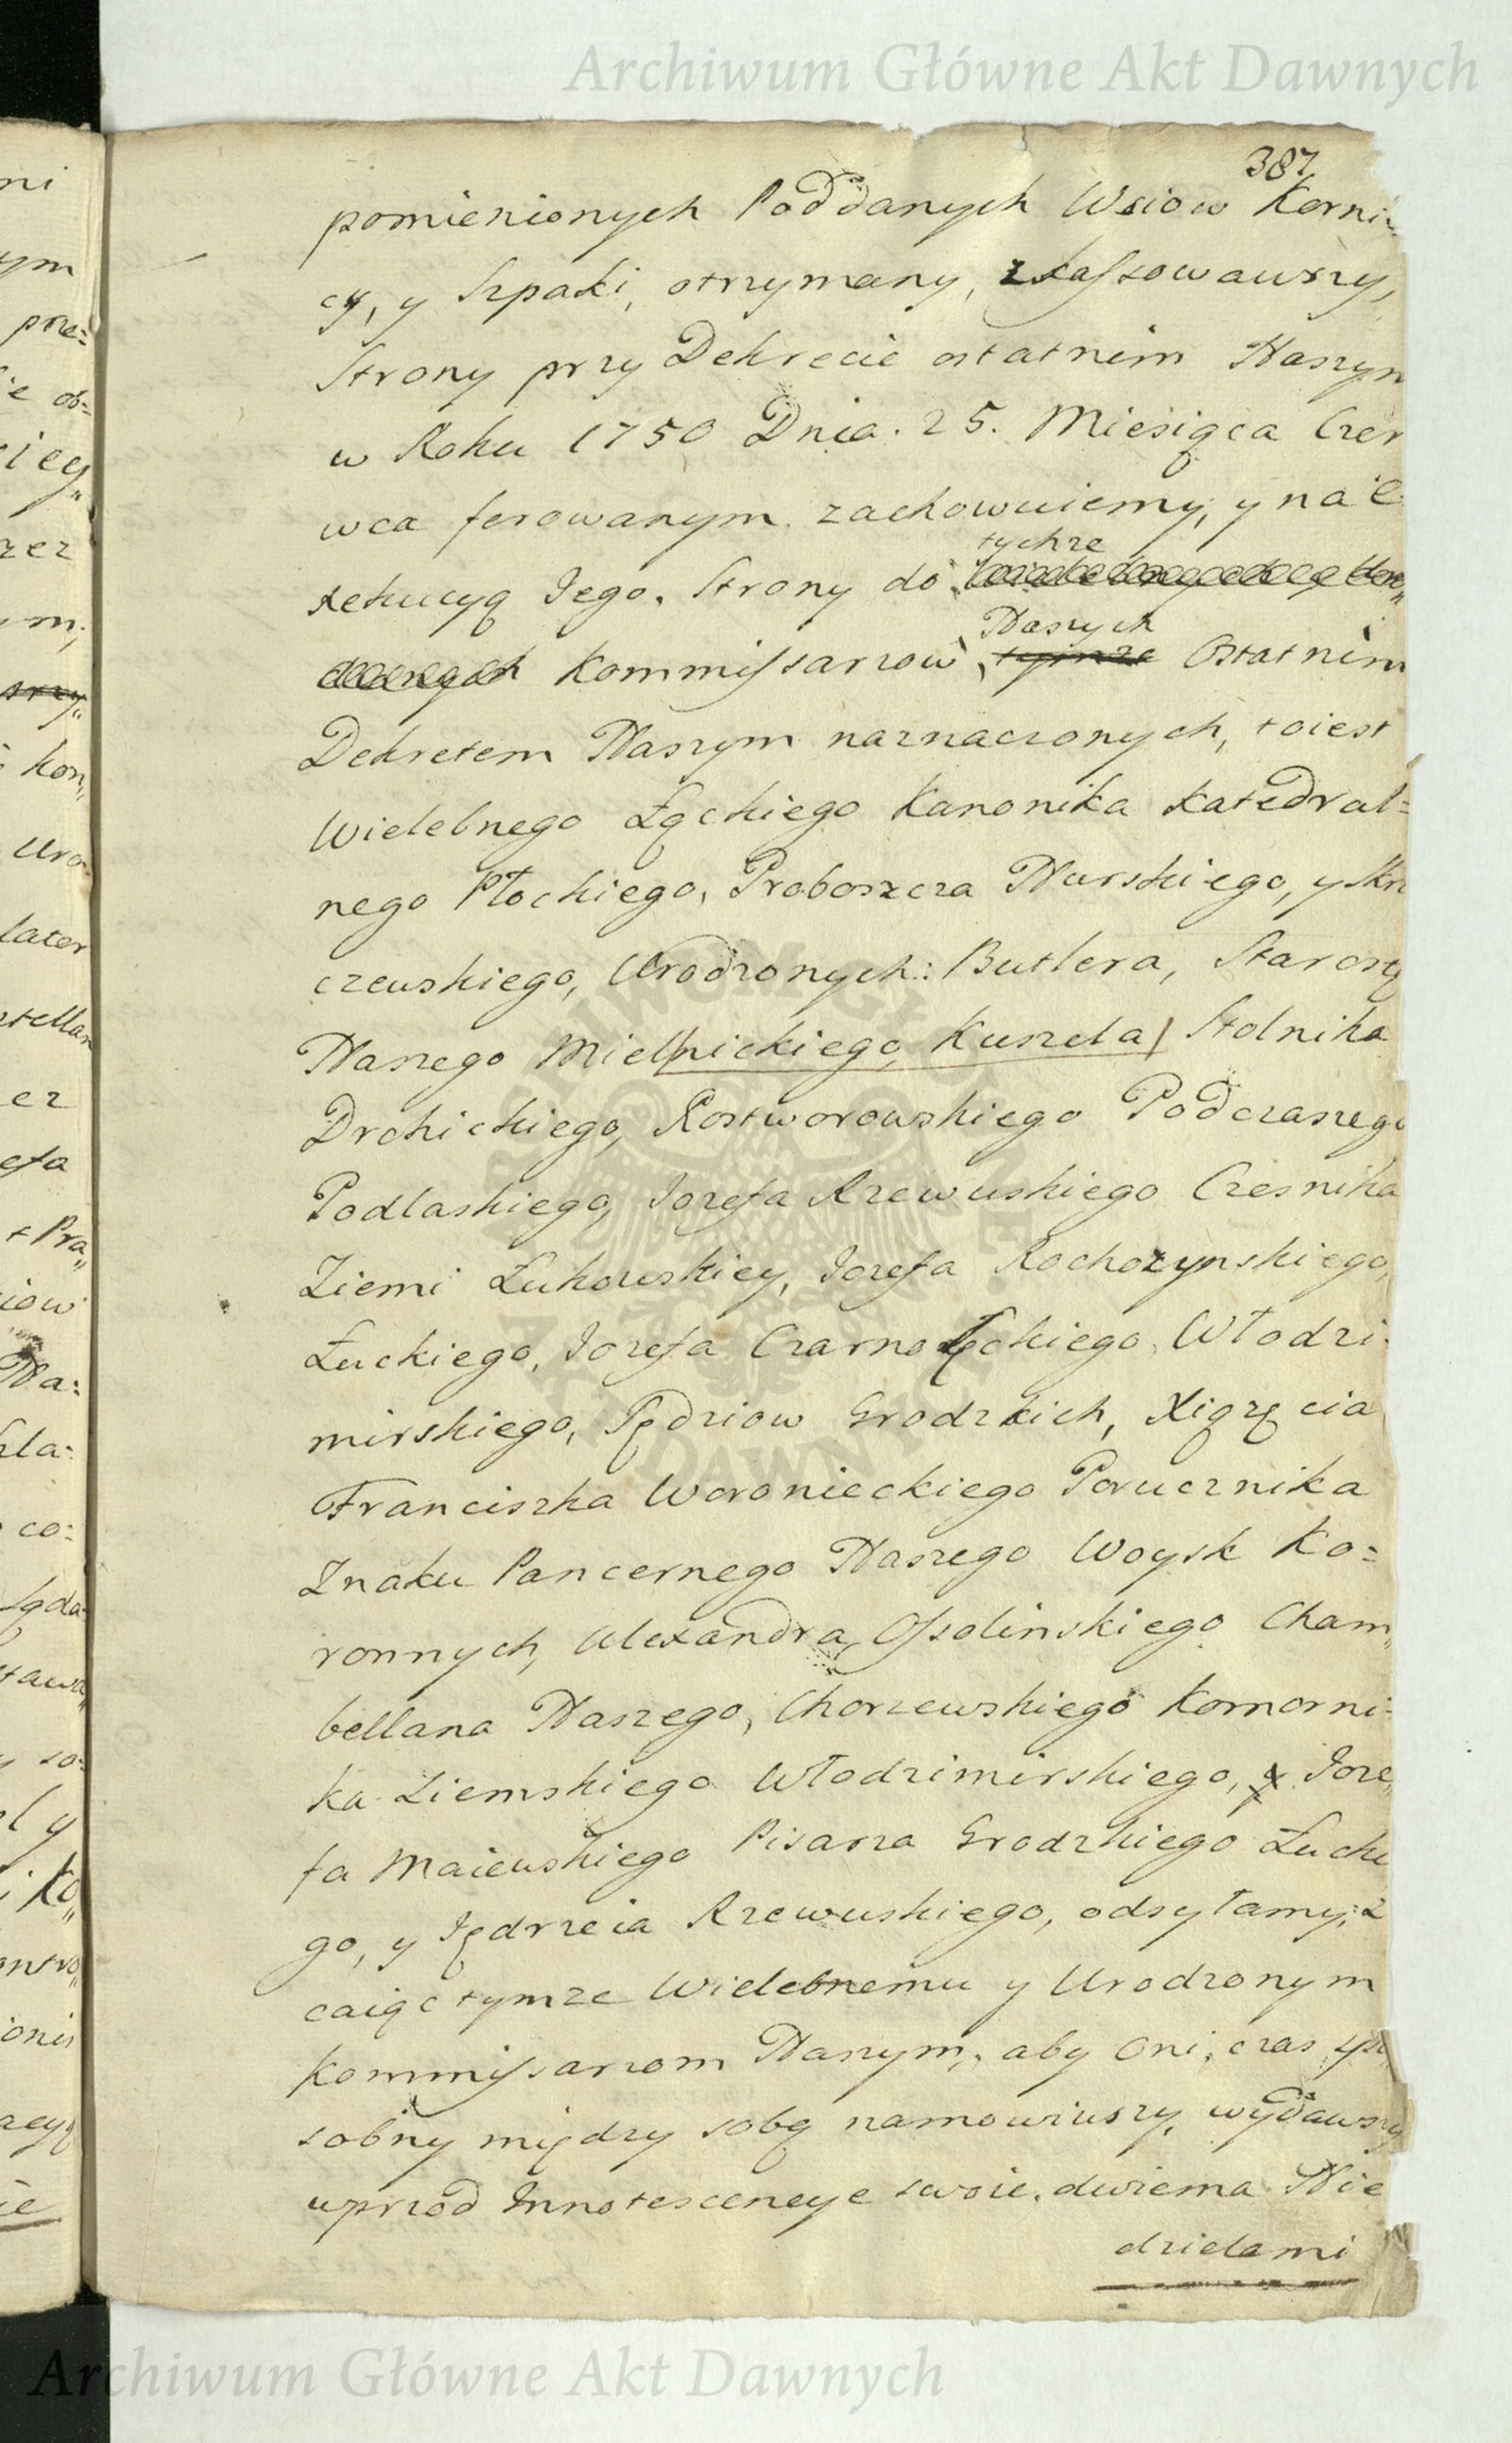 Archiwum Główne Akt Dawnych
387
pomienionych Poddanych Wsiow Korni
cy, y Szpaki, otrzymany, zkassowawszy,
Strony przy Dekrecie ostatnim Naszym
w Roku 1750 Dnia. 25. Miesiąca Czer
wca ferowanym zachowuiemy, y na e
tychze
xekucyą Iego. Strony do
Naszych
Kommissarzow, tymze Ostatnim
Dekretem Naszym naznaczonych, toiest
Wielebnego Łąckiego Kanonika Katedral=
nego Płockiego, Proboszcza Nurskiego, y Skr
czewskiego, Urodzonych: Butlera, Starosty
Naszego Mielnickiego, Kuszela, Stolnika
Drohickiego, Rostworowskiego Podczaszego
Podlaskiego, Iozefa Rzewuskiego Czesnika
Ziemi Łukowskiey, Iozefa Rochozynskiego,
Łuckiego, Iozefa Czarnołęckiego, Włodzi
mirskiego, Sędziow Grodzkich, Xiązęcia
Franciszka Woronieckiego Porucznika
Znaku Pancernego Naszego Woysk Ko=
ronnych, Alexandra Ossolinskiego Cham„
bellana Naszego, Chorzewskiego Komorni=
ka Ziemskiego Włodzimirskiego, y Ioze„
fa Maiewskiego Pisarza Grodzkiego Łucki
go, y Iędrzeia Rzewuskiego, odsyłamy, z
caiąc tymze Wielebnemu y Urodzonym
Kommissarzom Naszym, aby oni, czas spo
sobny między sobą namowiwszy, wydawszy
wprzod Innotescencye swoie. dwiema Nie
dzielami
Archiwum Główne Akt Dawnych